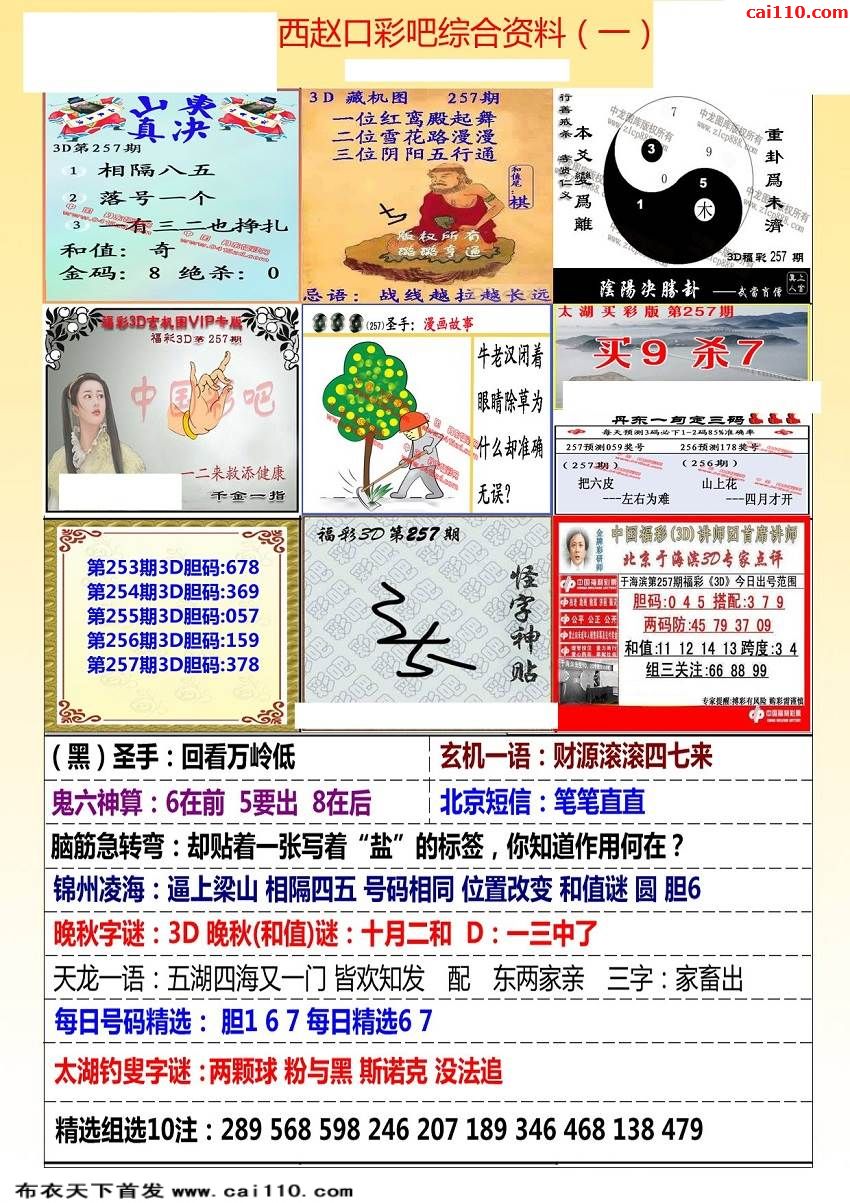 cai110.com
西赵口彩吧综合资料（一）
3D第257期
1 相隔八五
2 落号一个
3 一有三二也挣扎
和值：奇
金码：8 绝杀：0
3D 藏机图 257期
一位红鸾殿起舞
二位雪花路漫漫
三位阴阳五行通
和值尾：棋
版权所有
忌语：战线越拉越长远
本爻變爲離
重卦爲未濟
7
3
9
0
5
1
木
中龙图库版权所有
www.zlcp888.com
3D福彩 257 期
陰陽決勝卦
福彩3D玄机图VIP专版
福彩3D第257期
中国彩吧
一二来救添健康
千金一指
(257)圣手：漫画故事
牛老汉闭着
眼睛除草为
什么却准确
无误？
太湖买彩版 第257期
买9 杀7
丹东一句定三码
每天预测3码必下1-2码85%准确率
257预测059奖号 256预测178奖号
(257期) (256期)
把六皮 山上花
---左右为难 ---四月才开
第253期3D胆码:678
第254期3D胆码:369
第255期3D胆码:057
第256期3D胆码:159
第257期3D胆码:378
福彩3D第257期
怪字神贴
金牌彩研师
中国福彩(3D)讲师团首席讲师
北京于海滨3D专家点评
中国福利彩票
公平 公正 公开
于海滨第257期福彩《3D》今日出号范围
胆码:0 4 5 搭配:3 7 9
两码防:45 79 37 09
和值:11 12 14 13 跨度:3 4
组三关注:66 88 99
专家提醒:搏彩有风险 购彩需谨慎
中国福利彩票
（黑）圣手：回看万岭低 玄机一语：财源滚滚四七来
鬼六神算：6在前 5要出 8在后 北京短信：笔笔直直
脑筋急转弯：却贴着一张写着“盐”的标签，你知道作用何在？
锦州凌海：逼上梁山 相隔四五 号码相同 位置改变 和值谜 圆 胆6
晚秋字谜：3D 晚秋(和值)谜：十月二和 D：一三中了
天龙一语：五湖四海又一门 皆欢知发 配 东两家亲 三字：家畜出
每日号码精选： 胆1 6 7 每日精选6 7
太湖钓叟字谜：两颗球 粉与黑 斯诺克 没法追
精选组选10注：289 568 598 246 207 189 346 468 138 479
布衣天下首发 www.cai110.com